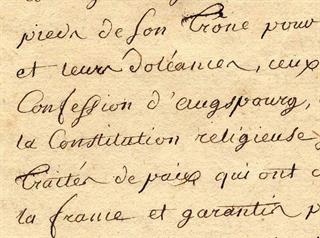 pieds de son Trone pour
et leurs doléances, ceux
Confession d'augspourg,
la Constitution religieuse
Traités de paix qui ont
la france et garantis p